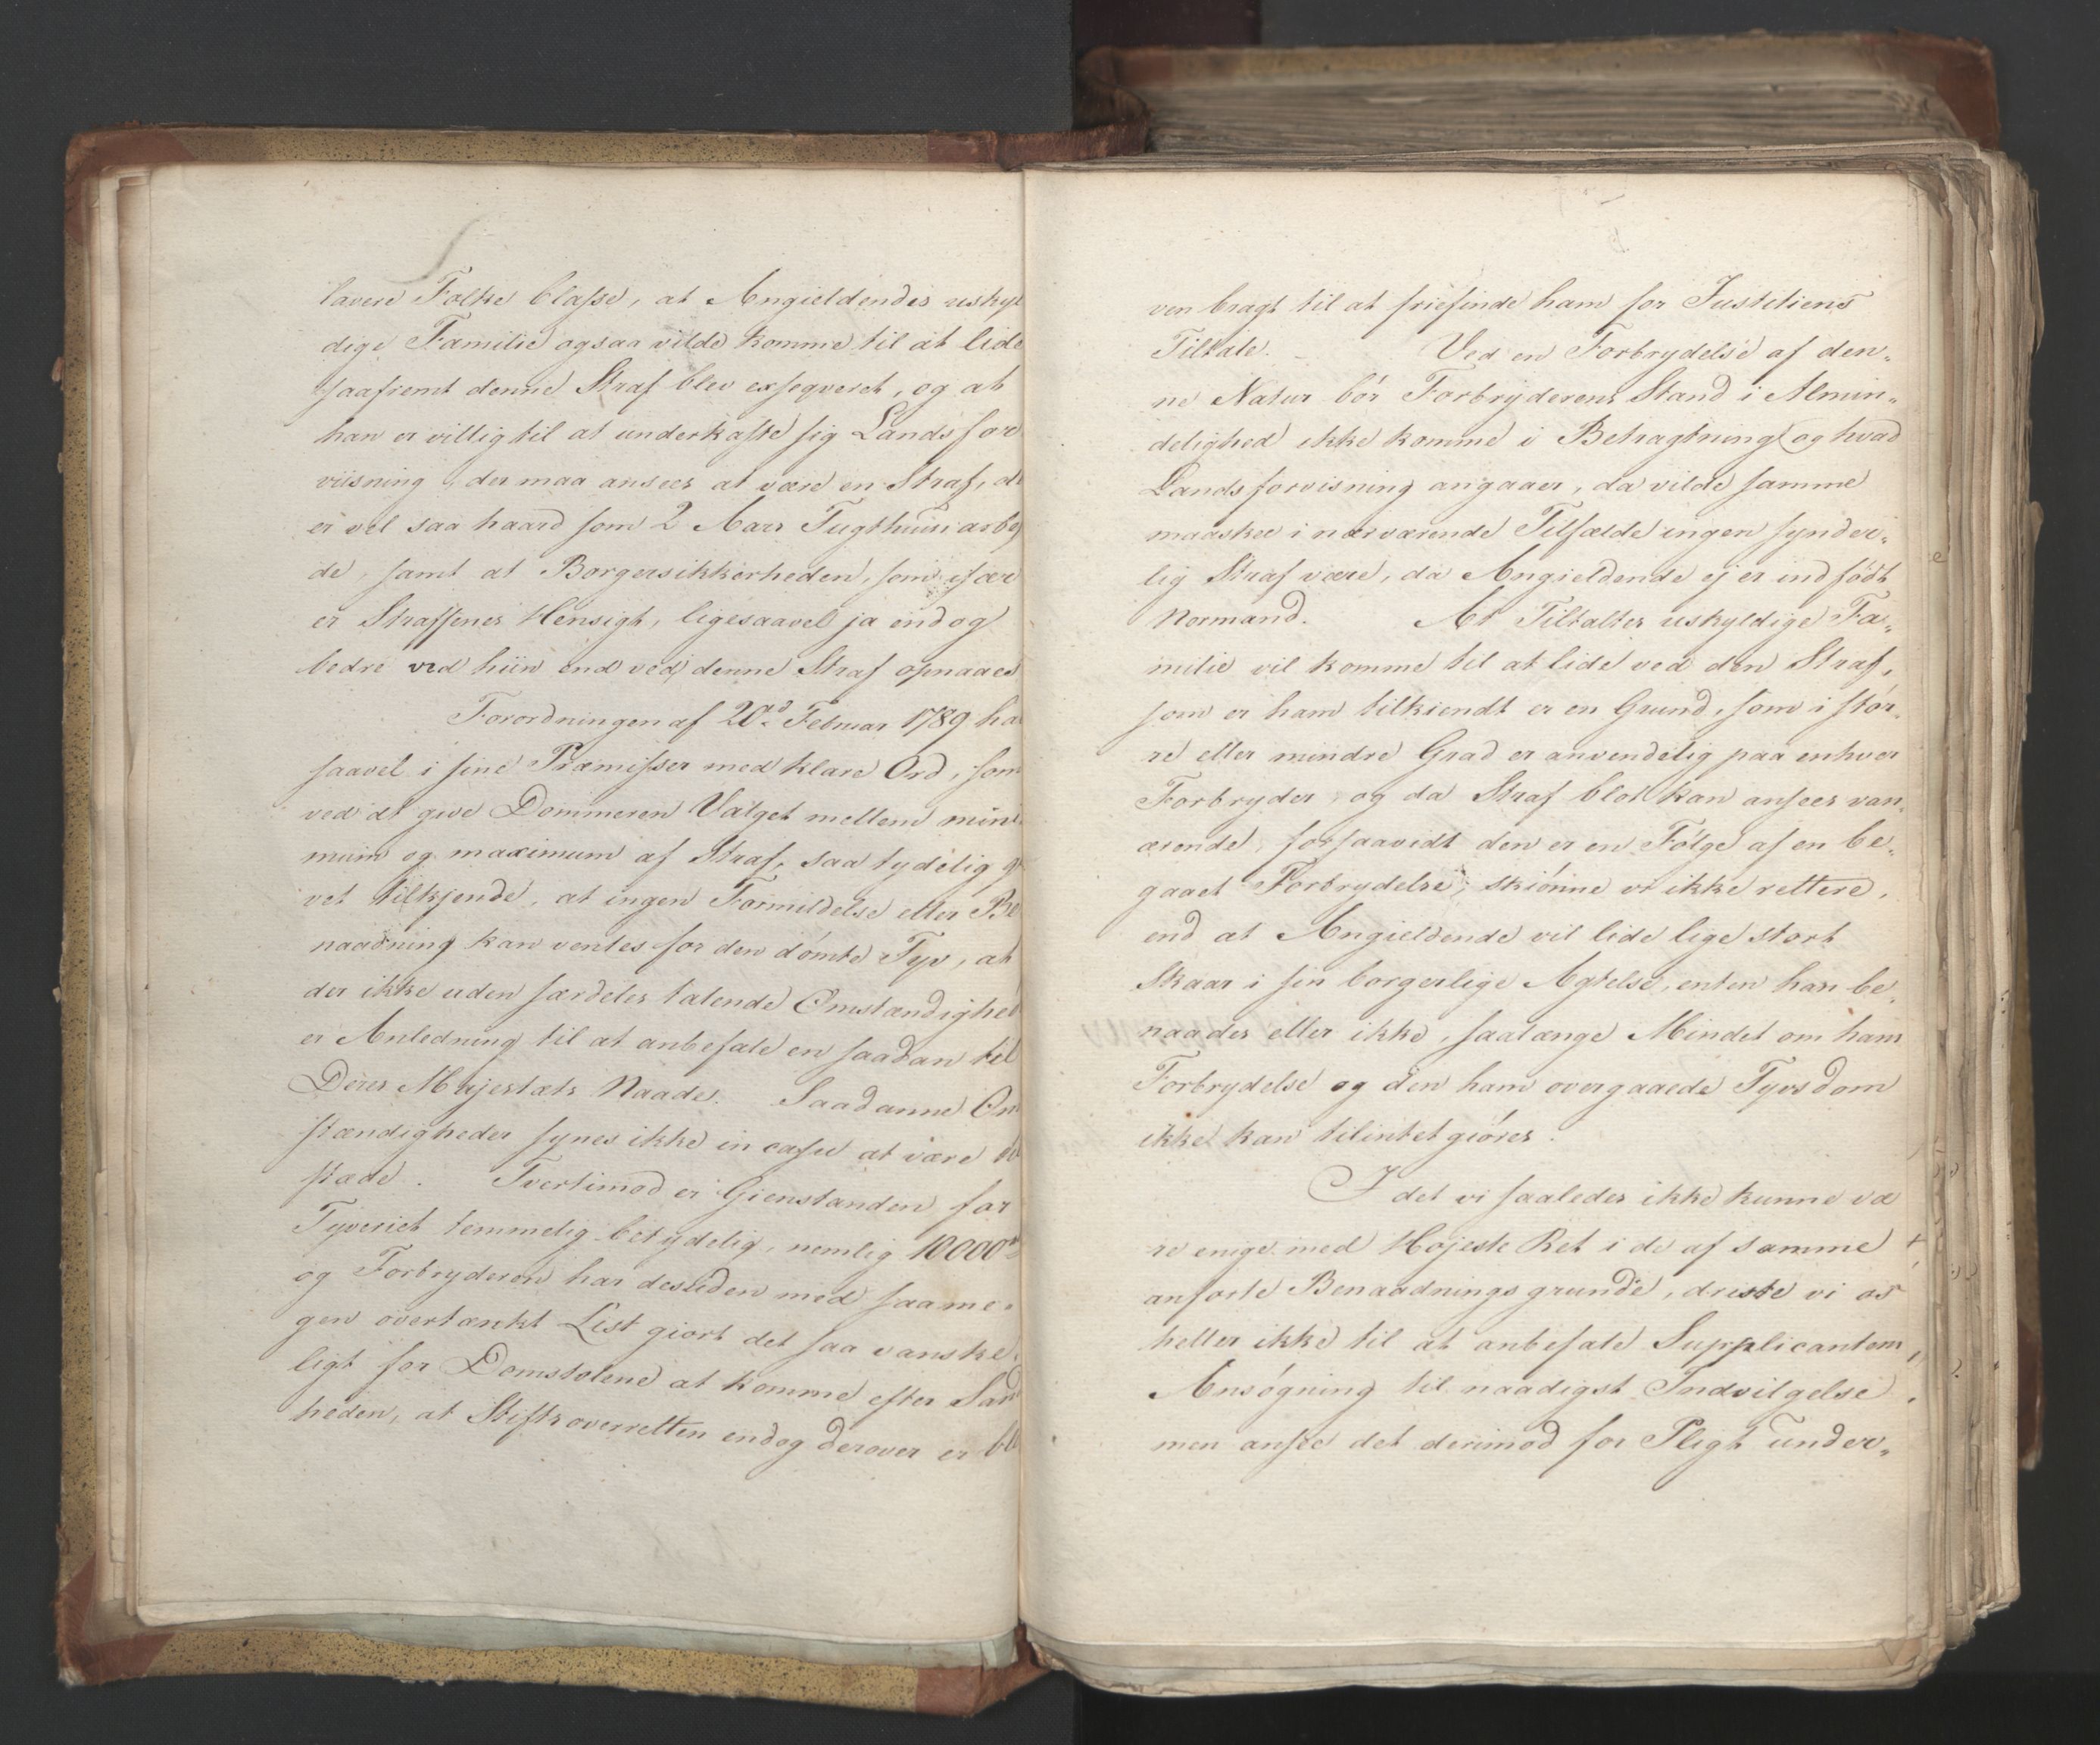 lavere Folke Classe, at Angieldendes uskyl
dige Familie ogsaa vilde komme til at lide
saafremt denne Straf blev exseqveret, og at
han er villig til at underkaste sig Landsfor
viisning, der maa ansees at være en Straf, de
er vel saa haard som 2 Aars Tugthuusarbey
de, samt at Borgersikkerheden, som især
er Straffenes Hensigt, ligesaavel ja endog
bedre ved hiin end ved denne Straf opnaaes
Forordningen af 20d. Februar 1789 ha
saavel i sine Præmisser med klare Ord, som
ved at give Dommeren Valget mellem mini
mum og maximum af Straf, saa tydelig gi
vet tilkjende, at ingen Formildelse eller Be
naadning kan ventes for den dømte Tyv, at
der ikke uden særdeles talende Omstændighed
er Anledning til at anbefale en saadan til
Deres Majestæts Naade. Saadanne Om
stændigheder synes ikke in casu at være til
stæde. Tvertimod er Gienstanden for
Tyveriet temmelig betydelig, nemlig 10000
og Forbryderen har desuden med saame-
gen overtænkt List giort det saa vanske-
ligt for Domstolene at komme efter Sand
heden, at Stiftsoverretten endog derover er ble
ven bragt til at friefinde ham for Justitiens
Tiltale. Ved en Forbrydelse af den-
ne Natur bør Forbryderens Stand i Almin-
delighed ikke komme i Betragtning og hvad
Landsforvisning angaaer, da vilde samme
maaskee i nærværende Tilfælde ingen synder-
lig Straf være, da Angieldende ej er indfødt
Normand. At Tiltaltes uskyldige Fa-
milie vil komme til at lide ved den Straf,
som er ham tilkiendt er en Grund, som i stør-
re eller mindre Grad er anvendelig paa enhver
Forbryder, og da Straf blot kan ansees van-
ærende, forsaavidt den er en Følge af en be-
gaaet Forbrydelse, skiønne vi ikke rettere,
end at Angieldende vil lide lige stort
Skaar i sin borgerlige Agtelse, enten han be-
naades eller ikke, saalænge Mindet om hans
Forbrydelse og den ham overgaaede Tyvsdom
ikke kan tilintetgiøres.
I det vi saaledes ikke kunne væ
re enige med Højeste Ret i de af samme
anførte Benaadningsgrunde, driste vi os
heller ikke til at anbefale Supplicantens
Ansøgning til naadigst Indvilgelse,
men ansee det derimod for Pligt under-